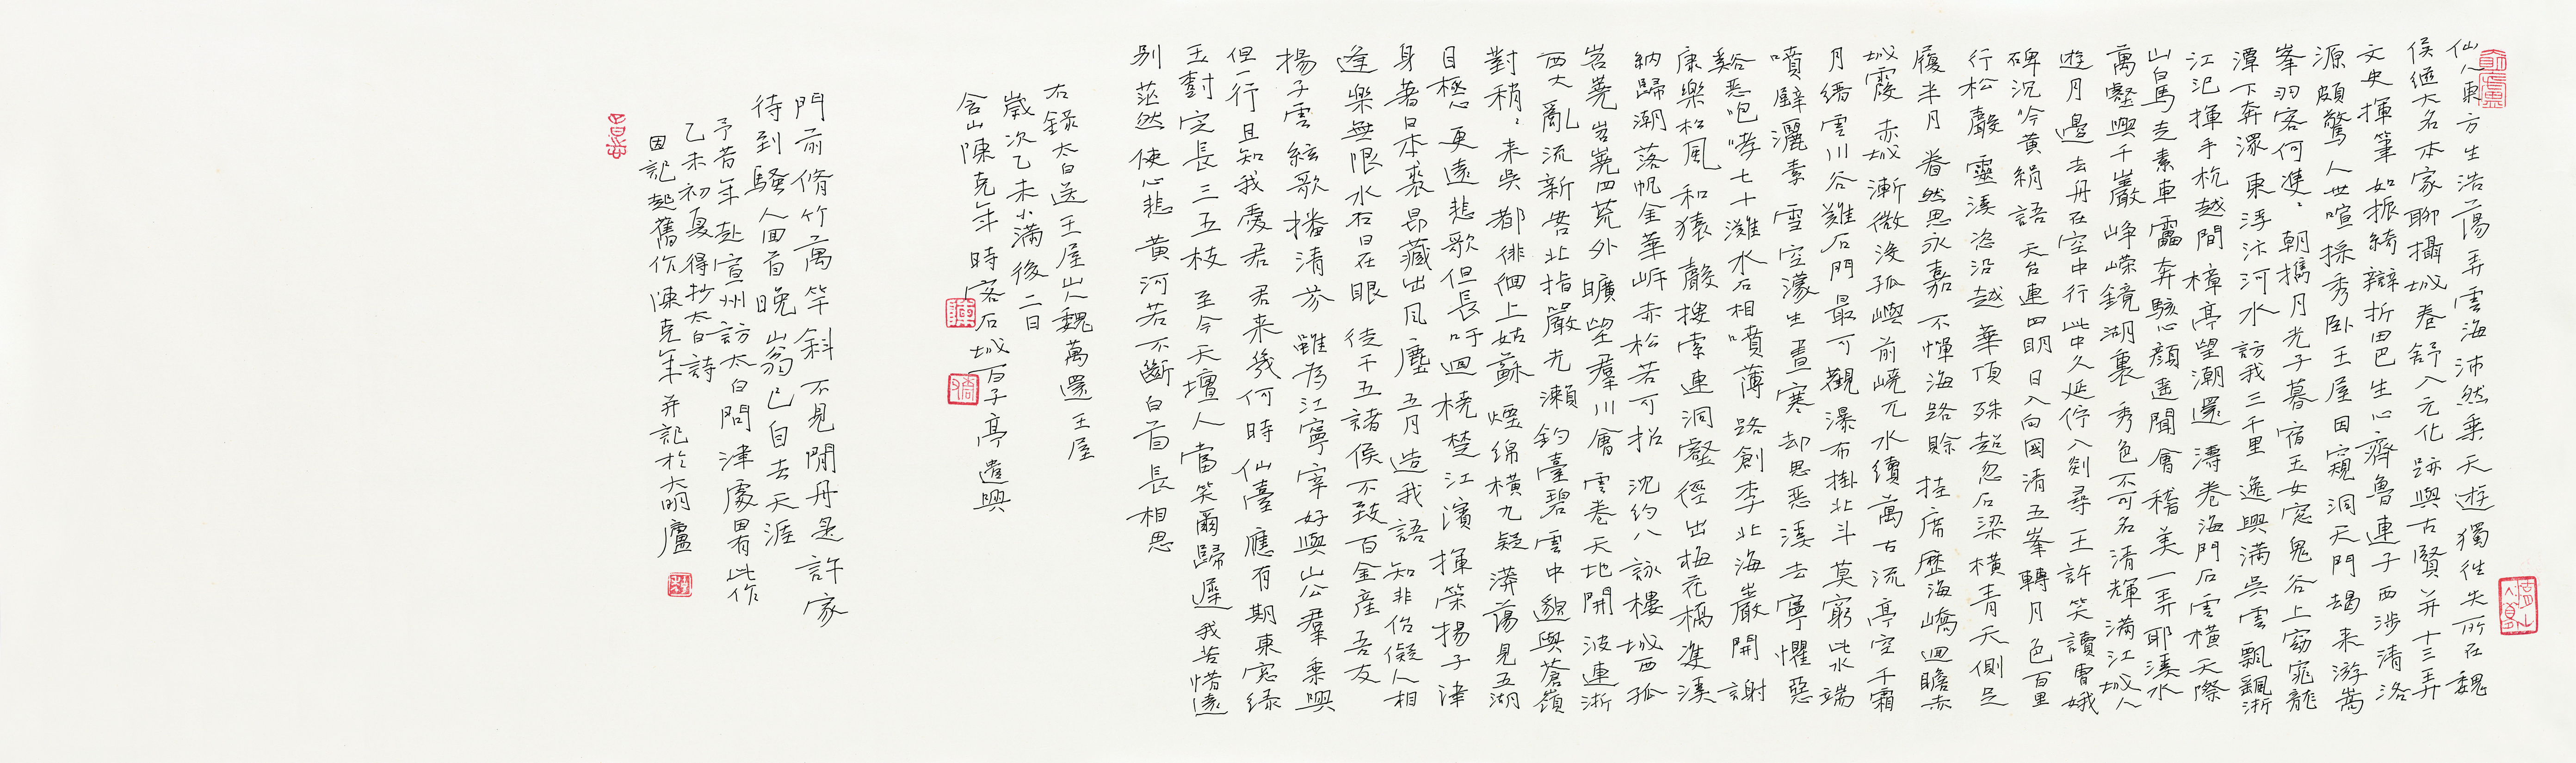 仙人東方生浩蕩弄雲海沛然乘天遊獨往失所在魏
侯繼大名本家聊攝城卷舒入元化跡與古賢并十三弄
文史揮筆如振綺辯折田巴生心齊魯連子西涉清洛
源頗驚人世喧採秀卧王屋因窺洞天門朅来游嵩
峯羽客何雙雙朝攜月光子暮宿玉女窓鬼谷上窈窕龍
潭下奔潈東浮汴河水訪我三千里逸興滿吳雲飄颻浙
江汜揮手杭越間樟亭望潮還濤卷海門石雲橫天際
山白馬走素車雷奔駭心顏遙聞會稽美一弄耶溪水
萬壑與千巖崢嶸鏡湖裏秀色不可名清輝滿江城人
遊月邊去舟在空中行此中久延佇入剡尋王許笑讀曹娥
碑沉吟黃絹語天台連四明日入向國清五峯轉月色百里
行松聲靈溪恣沿越華頂殊超忽石梁橫青天側足
履半月眷然思永嘉不憚海路賒挂席歷海嶠迴瞻赤
城霞赤城漸微没孤嶼前嶢兀水續萬古流亭空千霜
月縉雲川谷難石門最可觀瀑布掛北斗莫窮此水端
噴壁灑素雪空濛生晝寒却思惡溪去寧懼惡
谿惡咆哮七十灘水石相噴薄路創李北海巖開謝
康樂松風和猿聲搜索連洞壑徑出梅花橋雙溪
納歸潮落帆金華岸赤松若可招沈約八詠樓城西孤
岧嶤岧嶤四荒外曠望羣川會雲卷天地開波連浙
西大亂流新安北指嚴光瀨釣臺碧雲中邈與蒼嶺
對稍稍来吳都徘徊上姑蘇煙綿橫九疑漭蕩見五湖
目極心更遠悲歌但長吁迴橈楚江濱揮策揚子津
身著日本裘昂藏出風塵五月造我語知非佁儗人相
逢樂無限水石日在眼徒干五諸侯不致百金産吾友
揚子雲絃歌播清芬雖为江寧宰好與山公羣乘興
但一行且知我愛君君来幾何時仙臺應有期東窓綠
玉樹定長三五枝至今天壇人當笑爾歸遲我苦惜遠
別茫然使心悲黃河若不斷白首長相思
右錄太白送王屋山人魏萬還王屋
歲次乙未小滿後二日
含山陳克年時客石城百子亭遣興
門前脩竹萬竿斜不見閒丹是許家
待到騷人回首晚山翁已自去天涯
予昔年赴宣州訪太白問津處畧有此作
乙未初夏得抄太白詩
因記起舊作陳克年并記於大朙廬